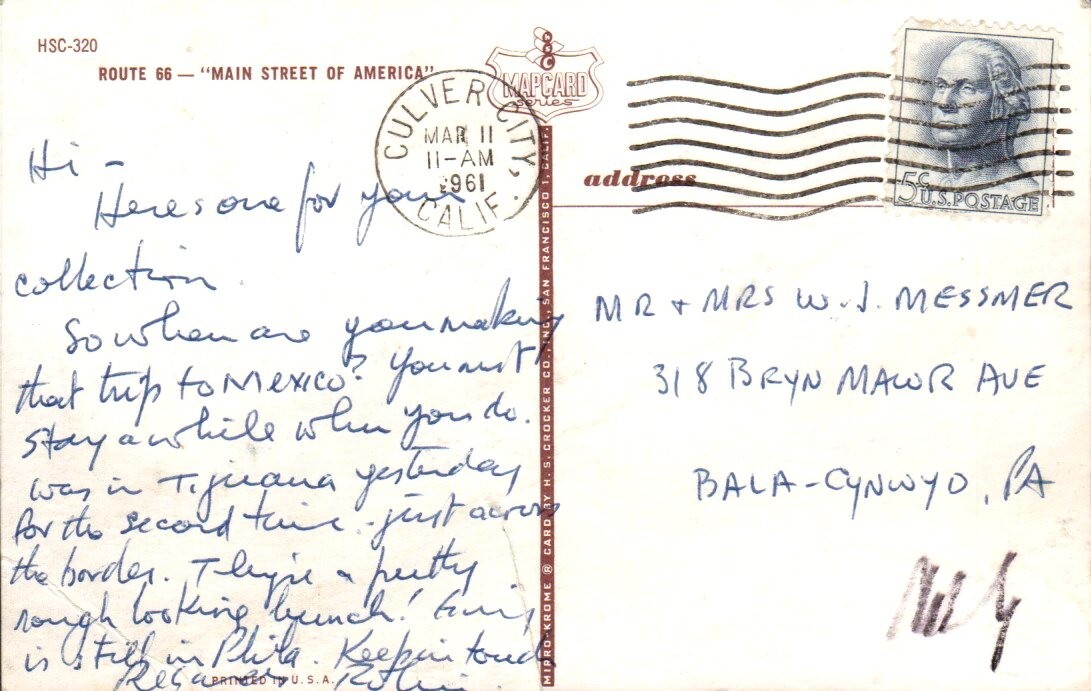 HSC-320
ROUTE 66 — "MAIN STREET OF AMERICA"
MAPCARD
series
CULVER CITY, CALIF.
MAR 11
11-AM
1961
5c
U.S. POSTAGE
address
Hi -
Heres one for your
collection.
So when are you making
that trip to Mexico? You must
stay a while when you do.
was in Tijuana yesterday
for the second time - just across
the border. They're a pretty
rough looking bunch!
is still in Phila. Keep in touch
Regards
PRINTED IN U.S.A.
MIRRO-KROME ® CARD BY H. S. CROCKER CO., INC., SAN FRANCISCO 1, CALIF.
MR + MRS W. J. MESSMER
318 BRYN MAWR AVE
BALA-CYNWYD, PA